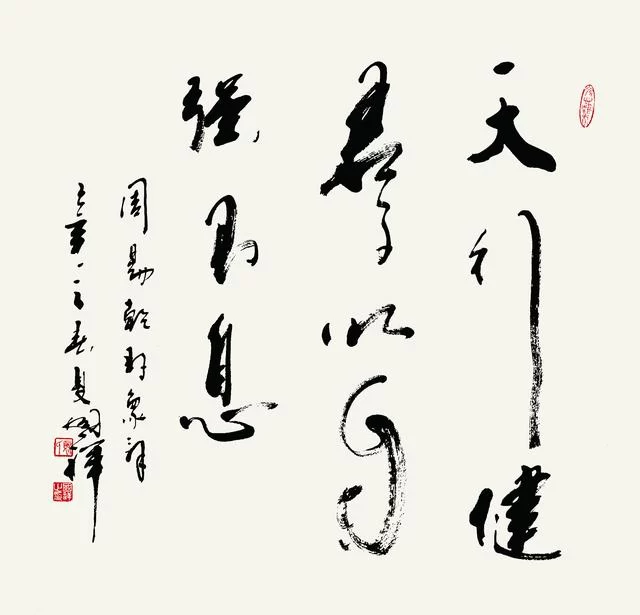 天行健
君子以自
强不息
周易乾卦象辞
春